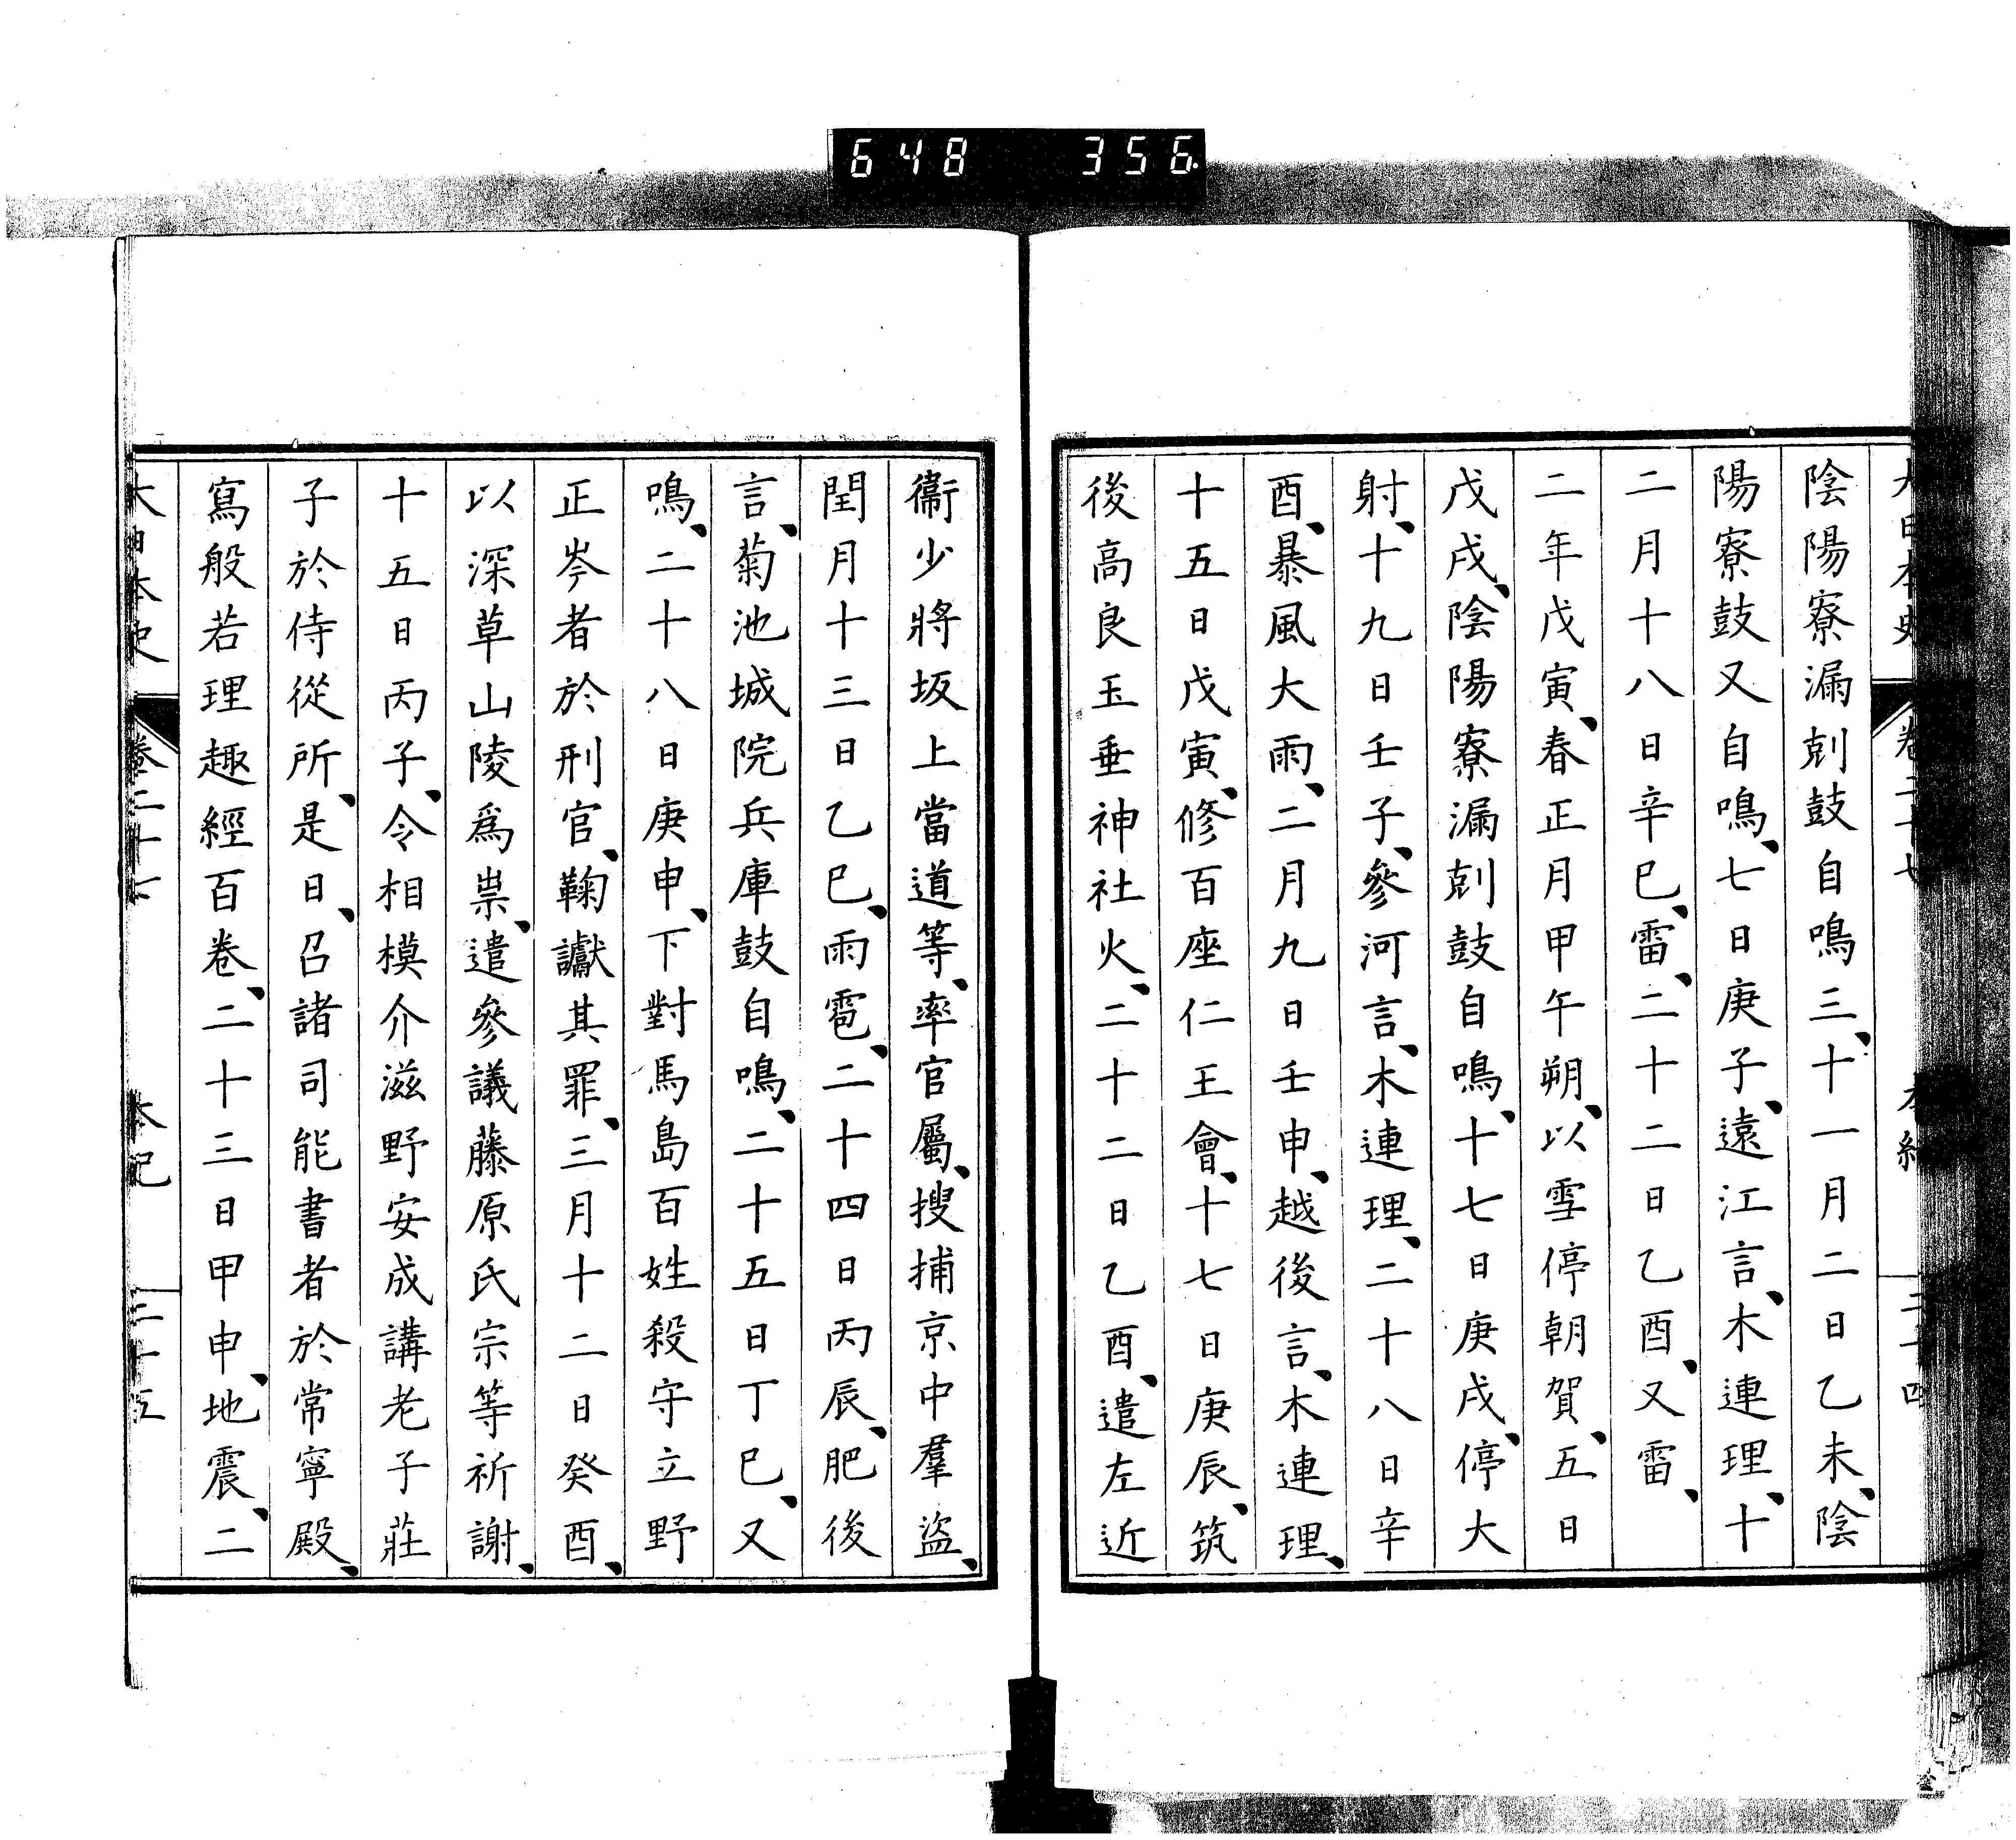 648 356
陰陽寮漏剋鼓自鳴三、十一月二日乙未、陰
陽寮鼓又自鳴、七日庚子、遠江言、木連理、十
二月十八日辛巳、雷、二十二日乙酉、又雷、
二年戊寅、春正月甲午朔、以雪停朝賀、五日
戊戌、陰陽寮漏剋鼓自鳴、十七日庚戌、停大
射、十九日壬子、參河言、木連理、二十八日辛
酉、暴風大雨、二月九日壬申、越後言、木連理、
十五日戊寅、修百座仁王會、十七日庚辰、筑
後高良玉垂神社火、二十二日乙酉、遣左近
衞少將坂上當道等、率官屬、搜捕京中羣盜、
閏月十三日乙巳、雨雹、二十四日丙辰、肥後
言、菊池城院兵庫鼓自鳴、二十五日丁巳、又
鳴、二十八日庚申、下對馬島百姓殺守立野
正岑者於刑官、鞠讞其罪、三月十二日癸酉、
以深草山陵爲祟、遣參議藤原氏宗等祈謝、
十五日丙子、令相模介滋野安成講老子莊
子於侍從所、是日、召諸司能書者於常寧殿、
寫般若理趣經百卷、二十三日甲申、地震、二
大日本史 卷二十七 本紀 二十五